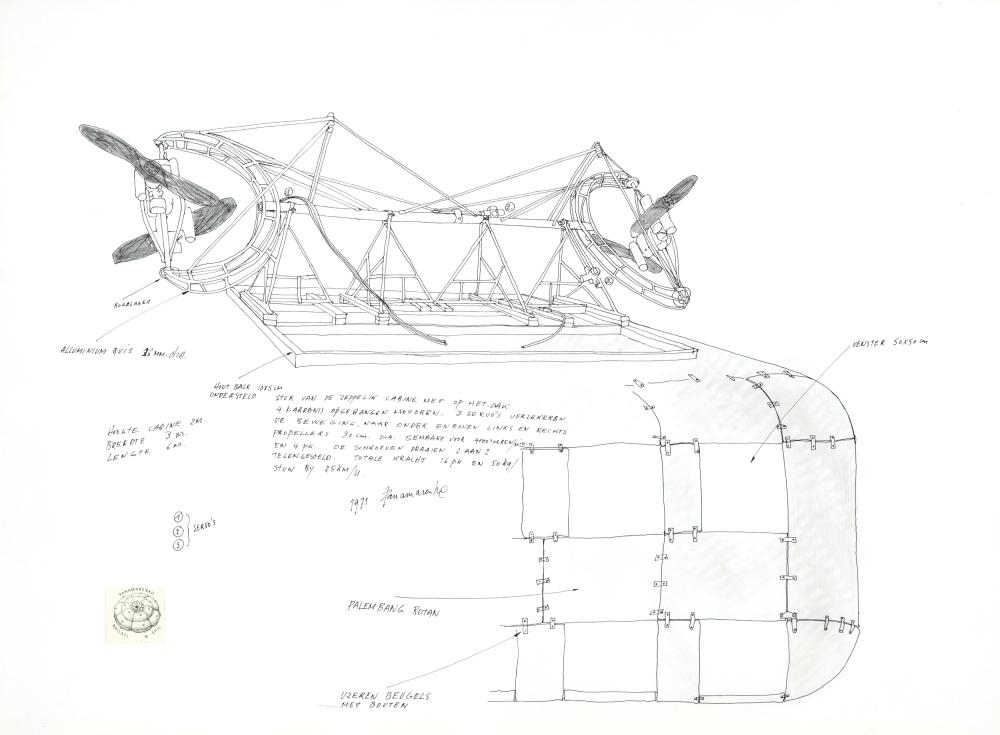 KOGELLAGER
ALLUMINIUM BUIS 36 MM. dIA.
VENSTER 50X50 cm
HOUT BALK 10X5 cm
ONDERSTELD
STUK VAN DE ZEPPELIN CABINE MET OP HET DAK
4 KARDANIS OPGEHANGEN MOTOREN. 3 SERVO'S VERZEKEREN
DE BEWEGING, NAAR ONDER EN BOVEN LINKS EN RECHTS
PROPELLERS 90 cm. DIA. GEMAAKT VOOR TOEREN/MIN
EN 4 PK. DE SCHROEVEN DRAAIEN 2 AAN 2
TEGENGESTELD TOTALE KRACHT 16 PK EN 50 kg/
STUW BY 25 KM/U.
HOOGTE CABINE 2M.
BREEDTE 3 M.
LENGTE 6 M.
1971 Panamarenko
1
2
3
SERVO'S
PALEMBANG ROTAN
IJZEREN BEUGELS
MET BOUTEN
PANAMARENKO